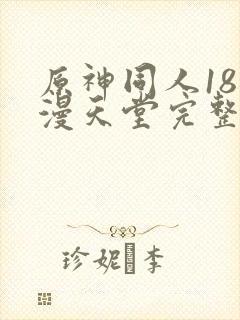 原神同人18
漫天堂完整
珍妮·李